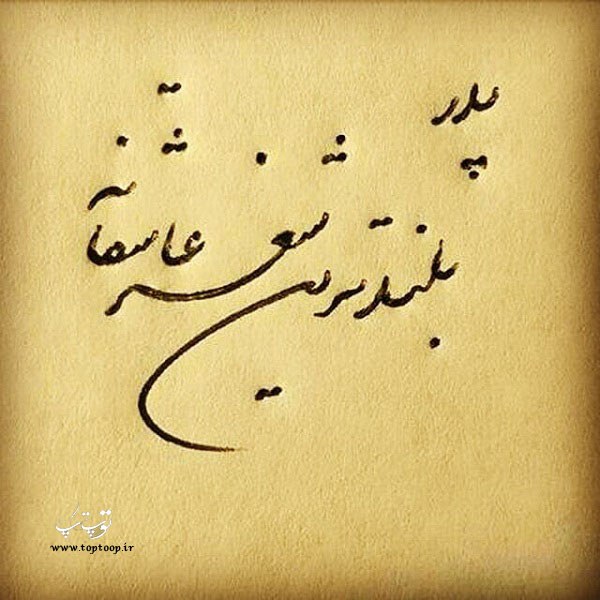 پدر
بلندترین شعر عاشقانه
توپ تپ
www.toptoop.ir